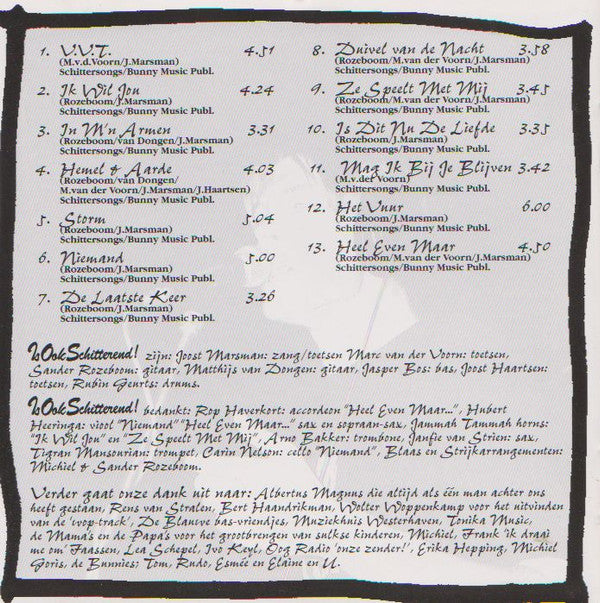 1. V.V.T. 4.51
(M.v.d.Voorn/J.Marsman)
Schittersongs/Bunny Music Publ.
2. Ik Wil Jou 4.24
(Rozeboom/J.Marsman)
Schittersongs/Bunny Music Publ.
3. In M'n Armen 3.31
(Rozeboom/van Dongen/J.Marsman)
Schittersongs/Bunny Music Publ.
4. Hemel & Aarde 4.03
(Rozeboom/van Dongen/
M.van der Voorn/J.Marsman/J.Haartsen)
Schittersongs/Bunny Music Publ.
5. Storm 5.04
(Rozeboom/J.Marsman)
Schittersongs/Bunny Music Publ.
6. Niemand 5.00
(Rozeboom/J.Marsman)
Schittersongs/Bunny Music Publ.
7. De Laatste Keer 3.26
(Rozeboom/J.Marsman)
Schittersongs/Bunny Music Publ.
8. Duivel van de Nacht 3.58
(Rozeboom/M.van der Voorn/J.Marsman)
Schittersongs/Bunny Music Publ.
9. Ze Speelt Met Mij 3.45
(Rozeboom/M.van der Voorn/J.Marsman)
Schittersongs/Bunny Music Publ.
10. Is Dit Nu De Liefde 3.35
(Rozeboom/J.Marsman)
Schittersongs/Bunny Music Publ.
11. Mag Ik Bij Je Blijven 3.42
(M.v.der Voorn)
Schittersongs/Bunny Music Publ.
12. Het Vuur 6.00
(Rozeboom/J.Marsman)
Schittersongs/Bunny Music Publ.
13. Heel Even Maar 4.50
(Rozeboom/M.van der Voorn/J.Marsman)
Schittersongs/Bunny Music Publ.
IsOokSchitterend! zijn: Joost Marsman: zang/toetsen Marc van der Voorn: toetsen,
Sander Rozeboom: gitaar, Matthijs van Dongen: gitaar, Jasper Bos: bas, Joost Haartsen:
toetsen, Rubin Geurts: drums.
IsOokSchitterend! bedankt: Rop Haverkort: accordeon "Heel Even Maar...", Hubert
Heeringa: viool "Niemand" "Heel Even Maar..." sax en sopraan-sax, Jammah Tammah horns:
"Ik Wil Jou" en "Ze Speelt Met Mij", Arno Bakker: trombone, Janfie van Strien: sax,
Tigran Mansourian: trompet, Carin Nelson: cello "Niemand", Blaas en Strijkarrangementen:
Michiel & Sander Rozeboom.
Verder gaat onze dank uit naar: Albertus Magnus die altijd als één man achter ons
heeft gestaan, Rens van Stralen, Bert Haandrikman, Wolter Woppenkamp voor het uitvinden
van de 'wop-track', De Blauwe bas-vriendjes, Muziekhuis Westerhaven, Tonika Music,
de Mama's en de Papa's voor het grootbrengen van sulkse kinderen, Michiel, Frank 'ik draai
me om' Faassen, Lea Schepel, Ivo Keyl, Oog Radio 'onze zender!', Erika Hepping, Michiel
Goris, de Bunnies; Tom, Rudo, Esmée en Elaine en U.